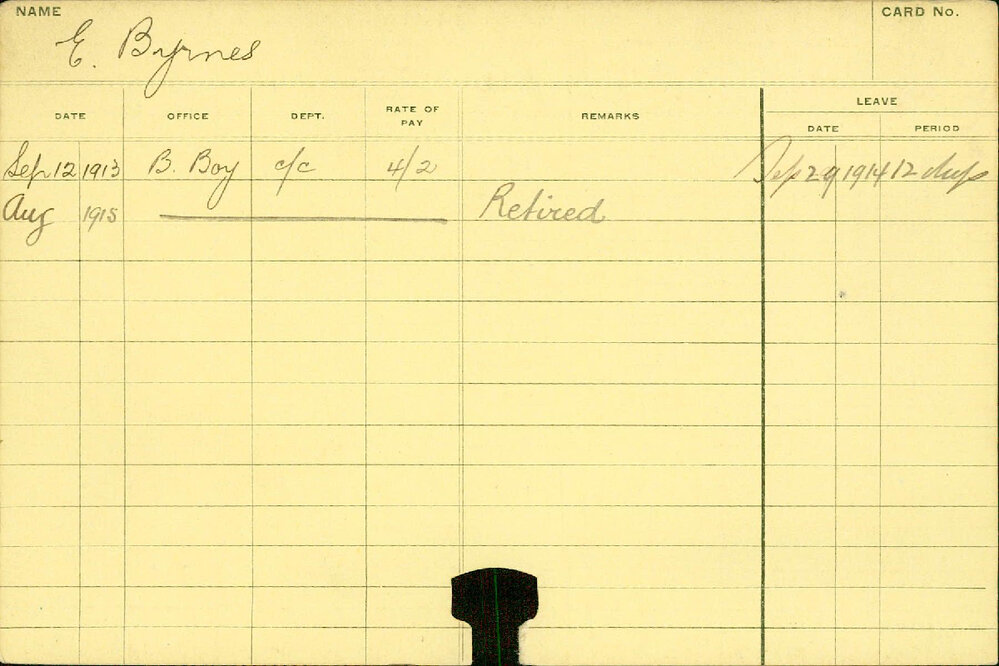 NAME
CARD No.
E. Byrnes
DATE OFFICE DEPT. RATE OF PAY REMARKS LEAVE
DATE PERIOD
Sep 12 1913 B. Boy c/c 4/2 Sep 29 1914 12 days
Aug 1915 Retired